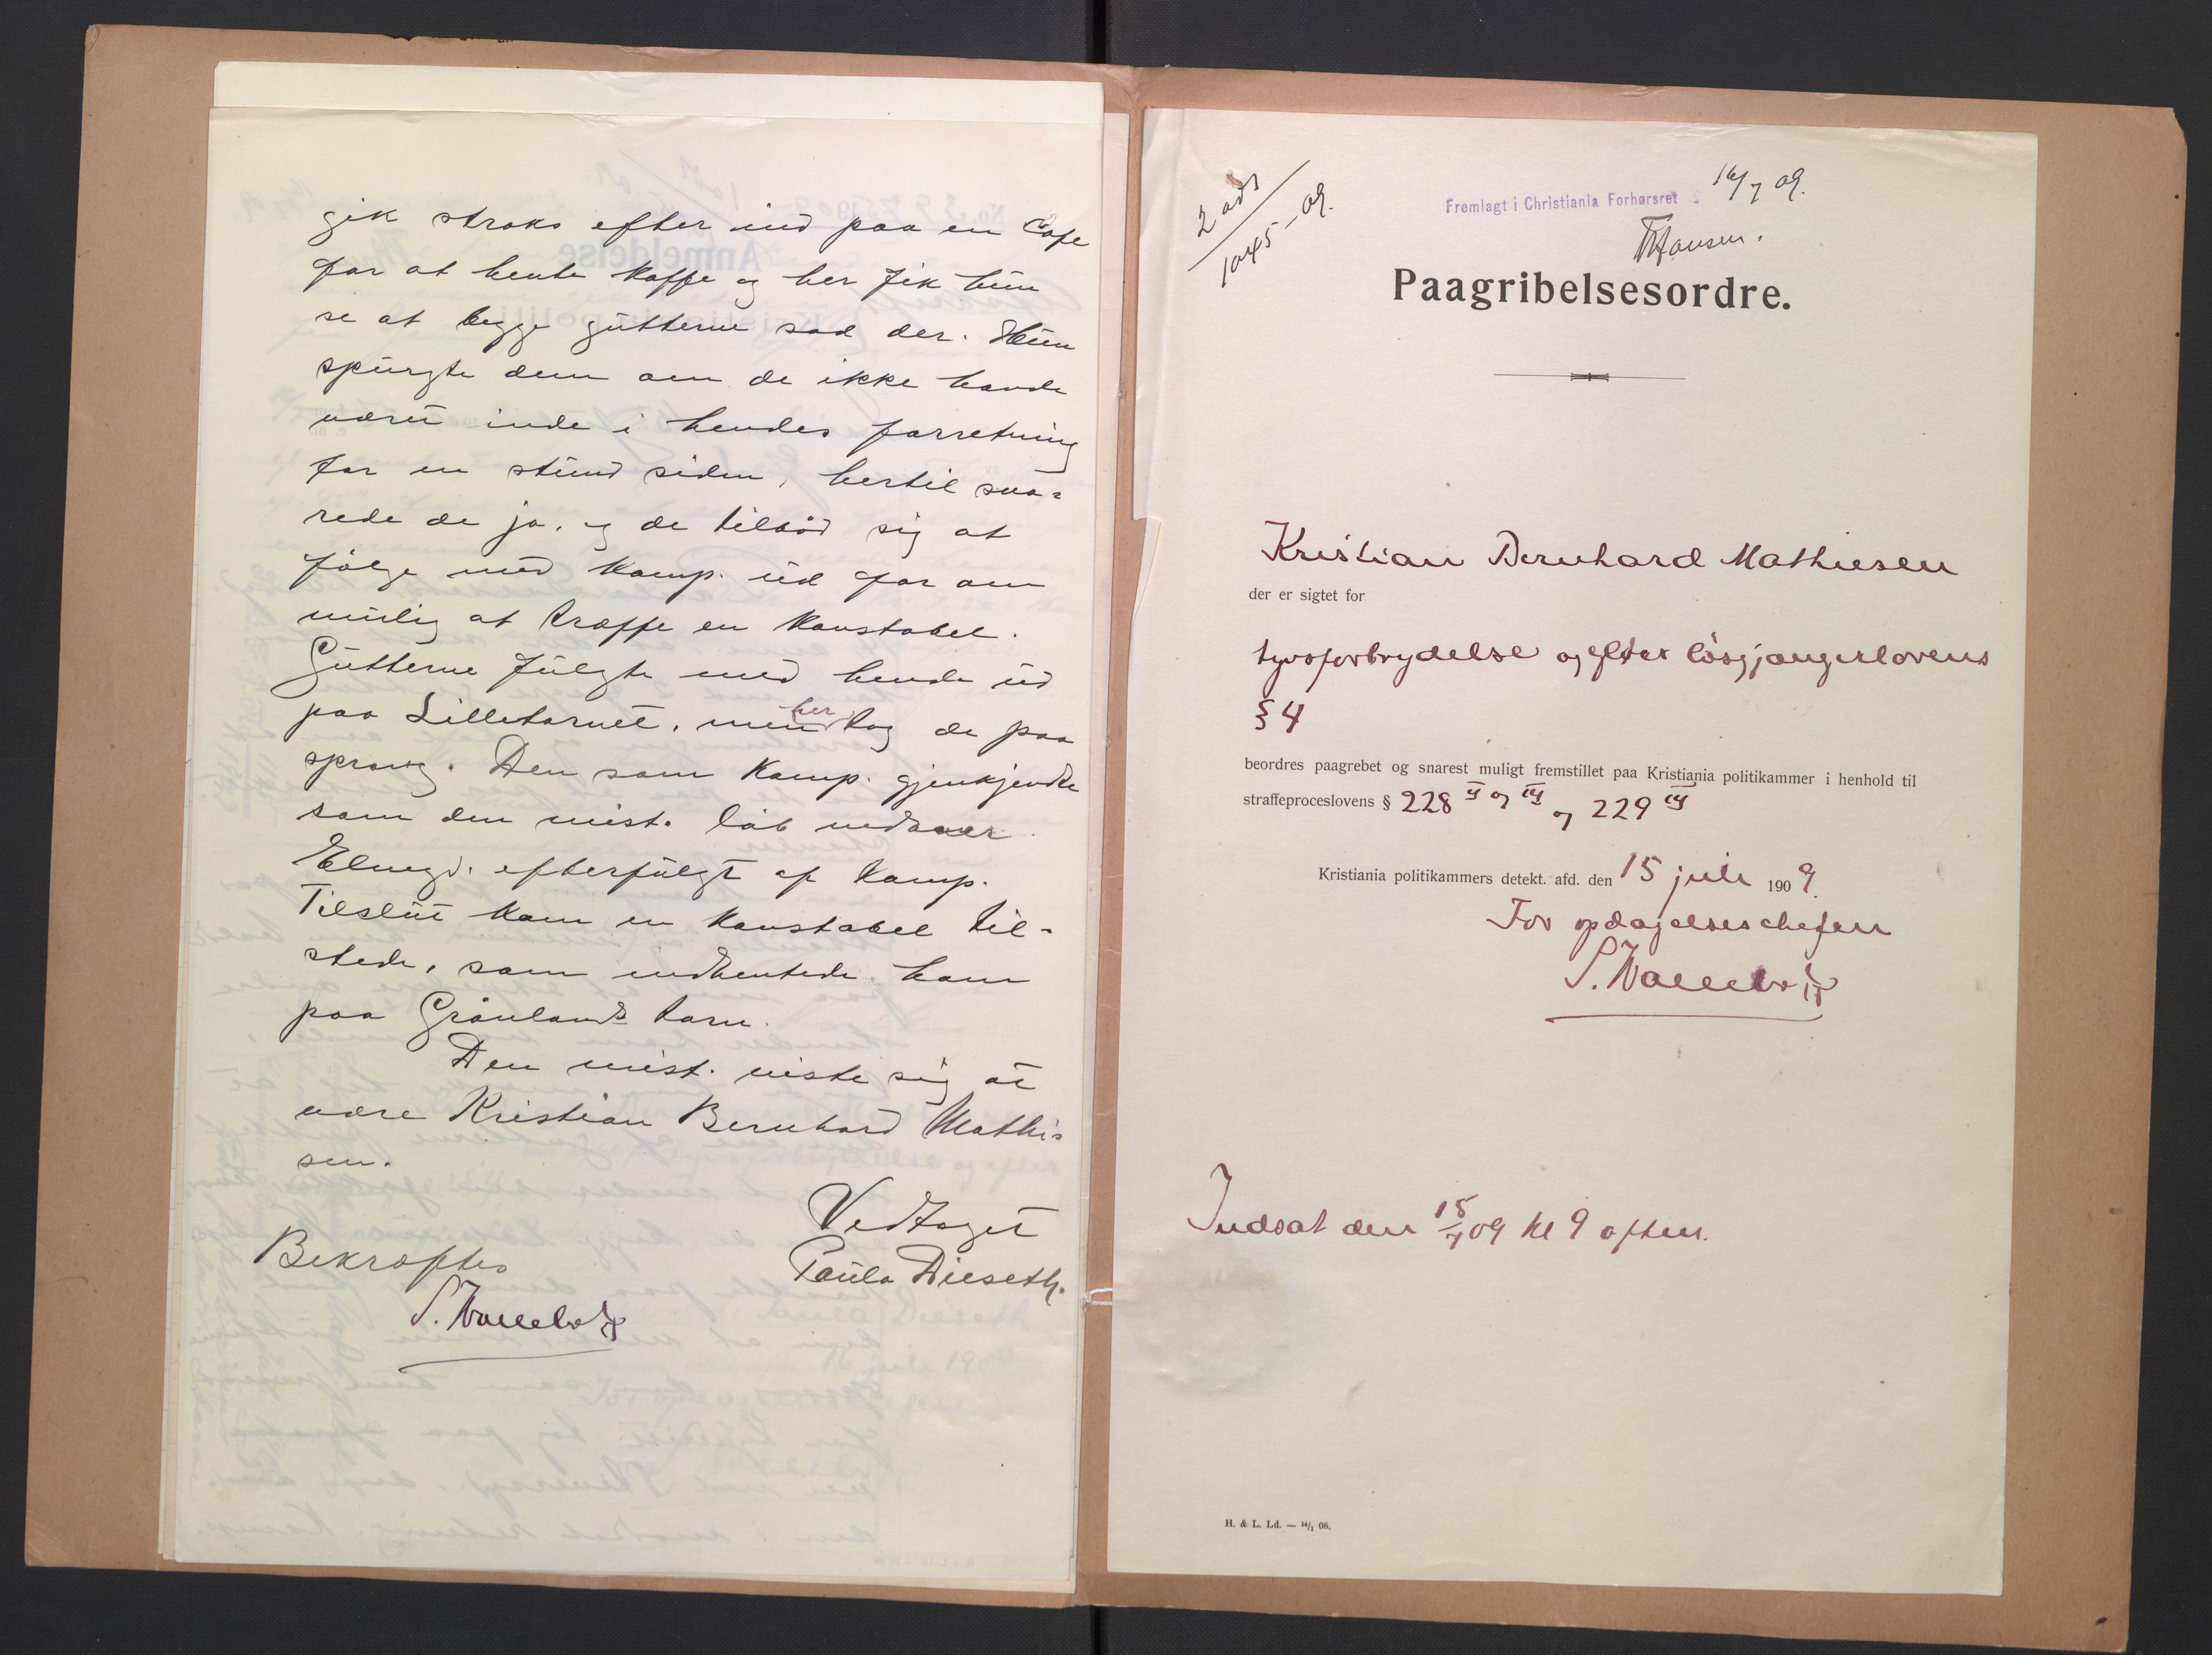 gik straks efter ind paa en Cafe
for at hente kaffe og her fik hun
se at begge gutterne sad der. Hun
spurgte dem om de ikke havde
været inde i hendes forretning
for en stund siden, hertil sva-
rede de ja, og de tilbød sig at
følge med komp. ud for om
mulig at træffe en konstabel.
Gutterne fulgte med hende ud
paa Lilletorvet, men her tog de paa
sprang. Den som komp. gjenkjendte
som den mist. løb nedover
Elvegd. efterfulgt af komp.
Tilslut kom en konstabel til-
stede, som indhentede ham
paa Grønlands torv.
Den mist. viste sig at
være Kristian Bernhard Mathi-
sen.
Vedtaget
Paula Dieseth.
Bekræftes
2 ad
1045-09.
Fremlagt i Christiania Forhørsret 16/7 09.
Hansen.
Paagribelsesordre.
Kristian Bernhard Mathiesen
der er sigtet for
tyvsforbrydelse og efter løsgjængerlovens
§ 4
beordres paagrebet og snarest muligt fremstillet paa Kristiania politikammer i henhold til
straffeproceslovens § 228 og og 229
Kristiania politikammers detekt. afd. den 15 juli 1909.
For opdagelseschefen
Indsat den 15/7 09 kl 9 aften.
H. & L. Ld. — 14/1 08.